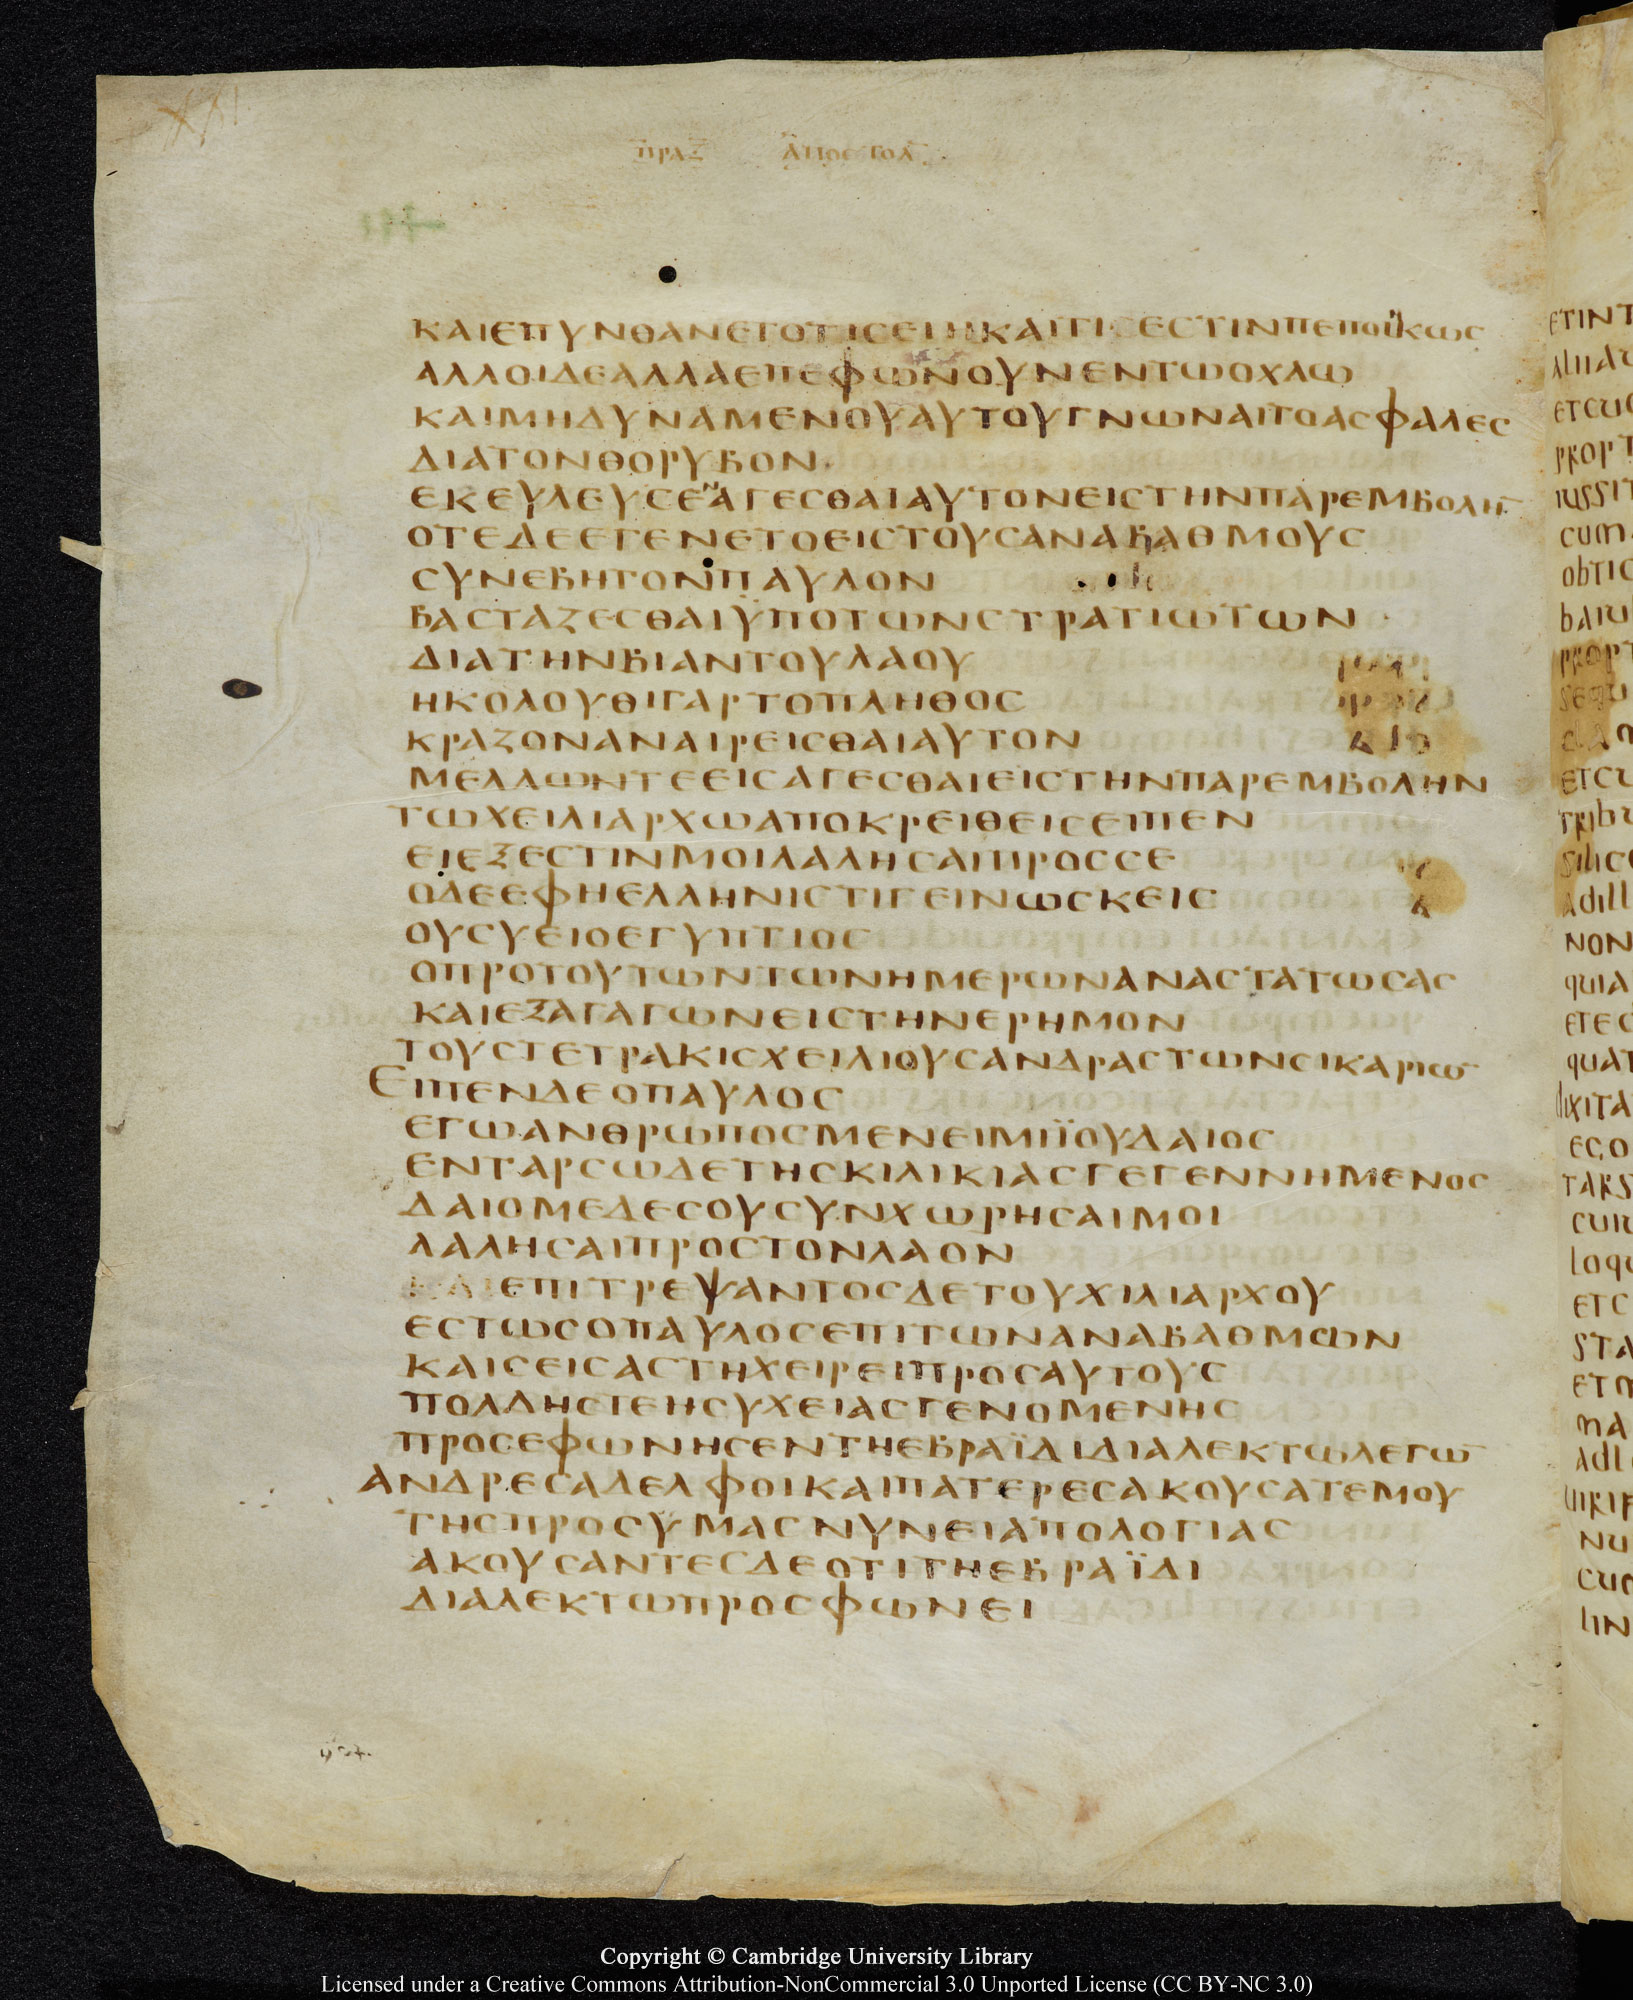 ΠΡΑΞ ΑΠΟΣΤΟΛ
ΚΑΙΕΠΥΝΘΑΝΕΤΟΤΙϹΕΙΗΚΑΙΤΙϹΕϹΤΙΝΠΕΠΟΪΚΩϹ
ΑΛΛΟΙΔΕΑΛΛΑΕΠΕΦΩΝΟΥΝΕΝΤΩΟΧΛΩ
ΚΑΙΜΗΔΥΝΑΜΕΝΟΥΑΥΤΟΥΓΝΩΝΑΙΤΟΑϹΦΑΛΕϹ
ΔΙΑΤΟΝΘΟΡΥΒΟΝ
ΕΚΕΥΛΕΥϹΕΝΑΓΕϹΘΑΙΑΥΤΟΝΕΙϹΤΗΝΠΑΡΕΜΒΟΛΗ̅
ΟΤΕΔΕΕΓΕΝΕΤΟΕΙϹΤΟΥϹΑΝΑΒΑΘΜΟΥϹ
ϹΥΝΕΒΗΤΟΝΠΑΥΛΟΝ
ΒΑϹΤΑΖΕϹΘΑΙΫΠΟΤΩΝϹΤΡΑΤΙΩΤΩΝ
ΔΙΑΤΗΝΒΙΑΝΤΟΥΛΑΟΥ
ΗΚΟΛΟΥΘΙΓΑΡΤΟΠΛΗΘΟϹ
ΚΡΑΖΟΝΑΝΑΙΡΕΙϹΘΑΙΑΥΤΟΝ
ΜΕΛΛΩΝΤΕΕΙϹΑΓΕϹΘΑΙΕΙϹΤΗΝΠΑΡΕΜΒΟΛΗΝ
ΤΩΧΕΙΛΙΑΡΧΩΑΠΟΚΡΕΙΘΕΙϹΕΙΠΕΝ
ΕΙΕΞΕϹΤΙΝΜΟΙΛΑΛΗϹΑΙΠΡΟϹϹΕ
ΟΔΕΕΦΗΕΛΛΗΝΙϹΤΙΓΕΙΝΩϹΚΕΙϹ
ΟΥϹΥΕΙΟΕΓΥΠΤΙΟϹ
ΟΠΡΟΤΟΥΤΩΝΤΩΝΗΜΕΡΩΝΑΝΑϹΤΑΤΩϹΑϹ
ΚΑΙΕΞΑΓΑΓΩΝΕΙϹΤΗΝΕΡΗΜΟΝ
ΤΟΥϹΤΕΤΡΑΚΙϹΧΕΙΛΙΟΥϹΑΝΔΡΑϹΤΩΝϹΙΚΑΡΙΩ̅
ΕΙΠΕΝΔΕΟΠΑΥΛΟϹ
ΕΓΩΑΝΘΡΩΠΟϹΜΕΝΕΙΜΙΪΟΥΔΑΙΟϹ
ΕΝΤΑΡϹΩΔΕΤΗϹΚΙΛΙΚΙΑϹΓΕΓΕΝΝΗΜΕΝΟϹ
ΔΑΙΟΜΕΔΕϹΟΥϹΥΝΧΩΡΗϹΑΙΜΟΙ
ΛΑΛΗϹΑΙΠΡΟϹΤΟΝΛΑΟΝ
ΚΑΙΕΠΙΤΡΕΨΑΝΤΟϹΔΕΤΟΥΧΙΛΙΑΡΧΟΥ
ΕϹΤΩϹΟΠΑΥΛΟϹΕΠΙΤΩΝΑΝΑΒΑΘΜΩΝ
ΚΑΙϹΕΙϹΑϹΤΗΧΕΙΡΕΙΠΡΟϹΑΥΤΟΥϹ
ΠΟΛΛΗϹΤΕΗϹΥΧΕΙΑϹΓΕΝΟΜΕΝΗϹ
ΠΡΟϹΕΦΩΝΗϹΕΝΤΗΕΒΡΑΪΔΙΔΙΑΛΕΚΤΩΛΕΓΩ̅
ΑΝΔΡΕϹΑΔΕΛΦΟΙΚΑΙΠΑΤΕΡΕϹΑΚΟΥϹΑΤΕΜΟΥ
ΤΗϹΠΡΟϹΥΜΑϹΝΥΝΕΙΑΠΟΛΟΓΙΑϹ
ΑΚΟΥϹΑΝΤΕϹΔΕΟΤΙΤΗΕΒΡΑΪΔΙ
ΔΙΑΛΕΚΤΩΠΡΟϹΦΩΝΕΙ
Copyright © Cambridge University Library
Licensed under a Creative Commons Attribution-NonCommercial 3.0 Unported License (CC BY-NC 3.0)